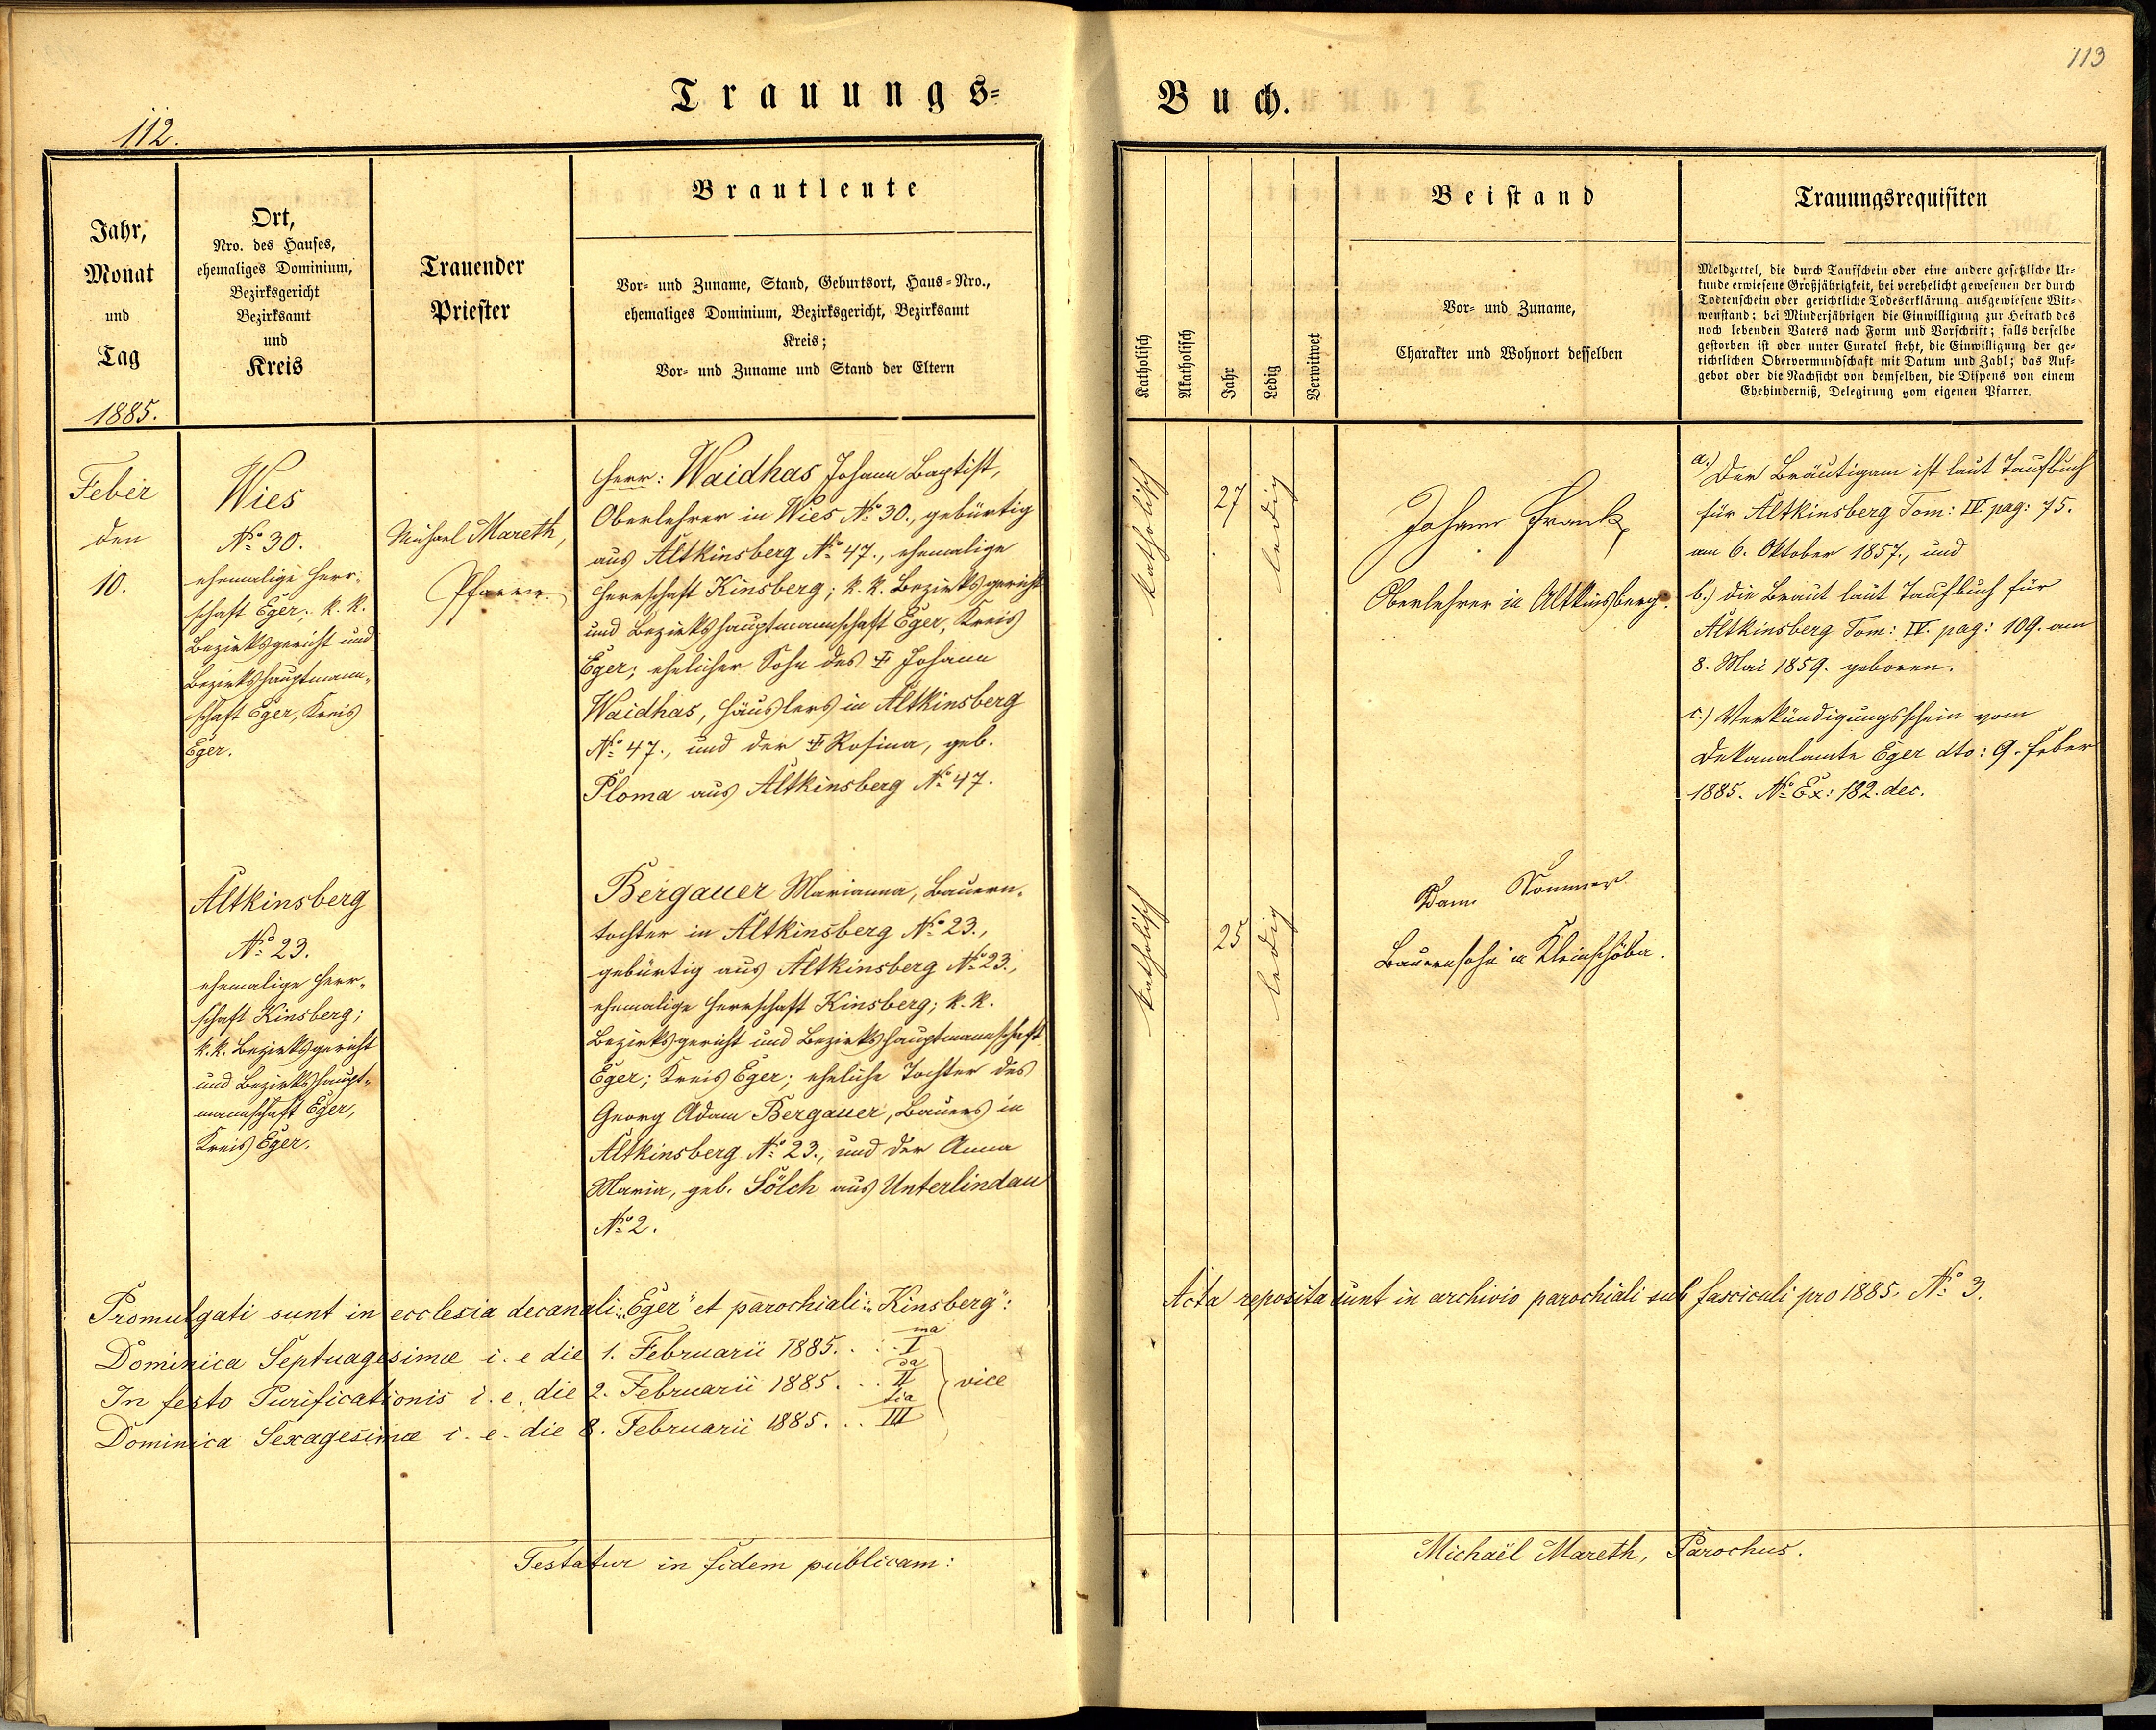 Trauungs-
Buch.
112.
113
Jahr,
Monat
und
Tag
1885.
Ort,
Nro. des Hauses,
ehemaliges Dominium,
Bezirksgericht
Bezirksamt
und
Kreis
Trauender
Priester
Brautleute
Vor- und Zuname, Stand, Geburtsort, Haus-Nro.,
ehemaliges Dominium, Bezirksgericht, Bezirksamt
Kreis;
Vor- und Zuname und Stand der Eltern
Katholisch
Akatholisch
Jahr
Ledig
Verwitwet
Beistand
Vor- und Zuname,
Charakter und Wohnort desselben
Trauungsrequisiten
Meldzettel, die durch Taufschein oder eine andere gesetzliche Ur-
kunde erwiesene Großjährigkeit, bei verehelicht gewesenen der durch
Todtenschein oder gerichtliche Todeserklärung ausgewiesene Wit-
wenstand; bei Minderjährigen die Einwilligung zur Heirath des
noch lebenden Vaters nach Form und Vorschrift; falls derselbe
gestorben ist oder unter Curatel steht, die Einwilligung der ge-
richtlichen Obervormundschaft mit Datum und Zahl; das Auf-
gebot oder die Nachsicht von demselben, die Dispens von einem
Ehehinderniß, Delegirung vom eigenen Pfarrer.
Feber
den
10.
Wies
No 30.
ehemalige Herr-
schaft Eger; k. k.
Bezirksgericht und
Bezirkshauptmann-
schaft Eger, Kreis
Eger.
Michael Mareth,
Pfarrer.
Herr: Waidhas Johann Baptist,
Oberlehrer in Wies No 30., gebürtig
aus Altkinsberg No 47., ehemalige
Herrschaft Kinsberg; k. k. Bezirksgericht
und Bezirkshauptmannschaft Eger, Kreis
Eger; ehelicher Sohn des † Johann
Waidhas, Häuslers in Altkinsberg
No 47., und der † Rosina, geb.
Ploma aus Altkinsberg No 47.
katholisch
27
ledig
Johann Frank,
Oberlehrer in Altkinsberg.
a.) Der Bräutigam ist laut Taufbuch
für Altkinsberg Tom: IV pag: 75.
am 6. Oktober 1857., und
b.) die Braut laut Taufbuch für
Altkinsberg Tom: IV. pag: 109. am
8. Mai 1859. geboren.
c.) Verkündigungsschein vom
Dekanalamte Eger dto: 9. Feber
1885. No Ex: 182. dec.
Altkinsberg
No 23.
ehemalige Herr-
schaft Kinsberg;
k. k. Bezirksgericht
und Bezirkshaupt-
mannschaft Eger,
Kreis Eger.
Bergauer Marianna, Bauern-
tochter in Altkinsberg No 23.,
gebürtig aus Altkinsberg No 23.,
ehemalige Herrschaft Kinsberg; k. k.
Bezirksgericht und Bezirkshauptmannschaft
Eger; Kreis Eger; eheliche Tochter des
Georg Adam Bergauer, Bauers in
Altkinsberg No 23., und der Anna
Maria, geb. Sölch aus Unterlindau
No 2.
katholisch
25
ledig
Adam Sommer
Bauernsohn in Kleinschöba.
Promulgati sunt in ecclesia decanali: „Eger" et parochiali: „Kinsberg":
Dominica Septuagesimæ i. e die 1. Februarii 1885. . . I ma
In festo Purificationis i. e. die 2. Februarii 1885. . . II da vice
Dominica Sexagesimæ i. e. die 8. Februarii 1885. . . III tia
Acta reposita sunt in archivio parochiali sub fasciculi pro 1885. No 3.
Testatur in fidem publicam:
Michaël Mareth, Parochus.